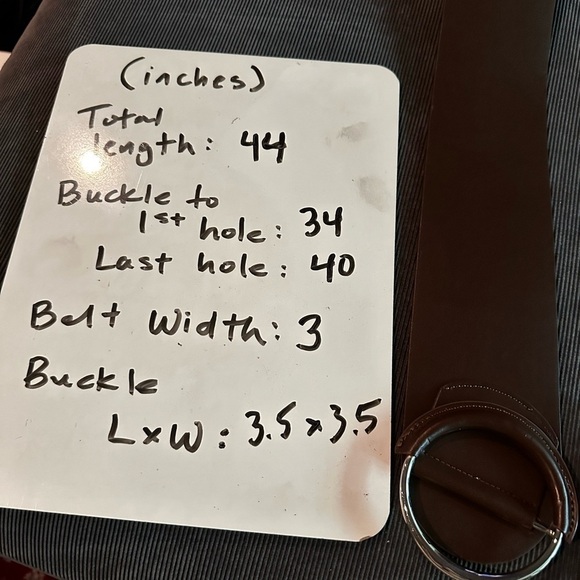 (inches)
Total
length: 44
Buckle to
1st hole: 34
Last hole: 40
Belt Width: 3
Buckle
LxW: 3.5x3.5